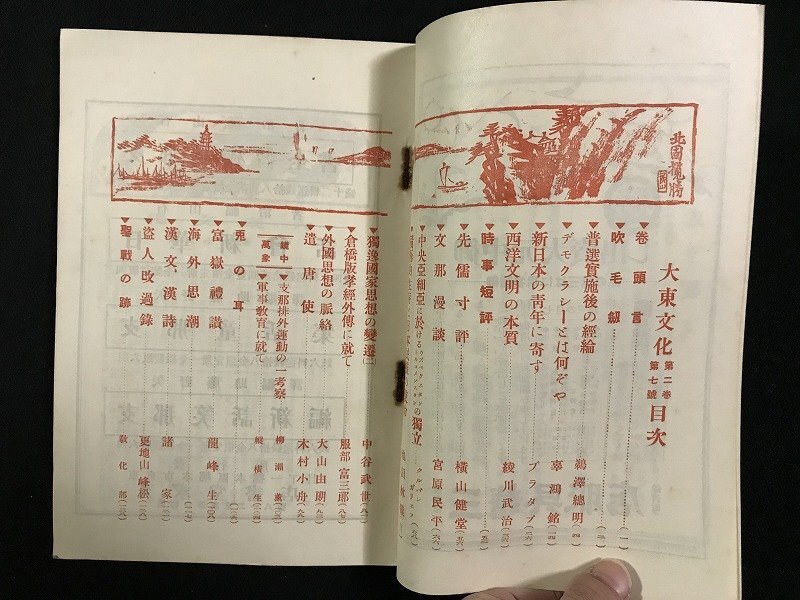 北國攬勝
大東文化 第二卷 第七號 目次
▼卷頭言
▼吹毛劔
▼普選實施後の經綸 鵜澤總明
▼デモクラシーとは何ぞや 辜鴻銘
▼新日本の靑年に寄す プラタプ
▼西洋文明の本質 綾川武治
▼時事短評
▼先儒寸評 橫山健堂
▼文那漫談 宮原民平
▼中央亞細亞に於ける の獨立
▼獨逸國家思想の變遷 中谷武世
▼倉橋版孝經外傳に就て 服部富三郎
▼外國思想の脈絡 大山由朗
▼遣唐使 木村小舟
鏡中萬象
▼支那排外運動の一考察 柳瀨薰
▼軍事敎育に就て 縱橫生
▼兎の耳
▼富嶽禮讃 龍峰生
▼海外思潮
▼漢文、漢詩 諸家
▼盜人改過錄 夏地山峰松
▼聖戰の跡 敎化部